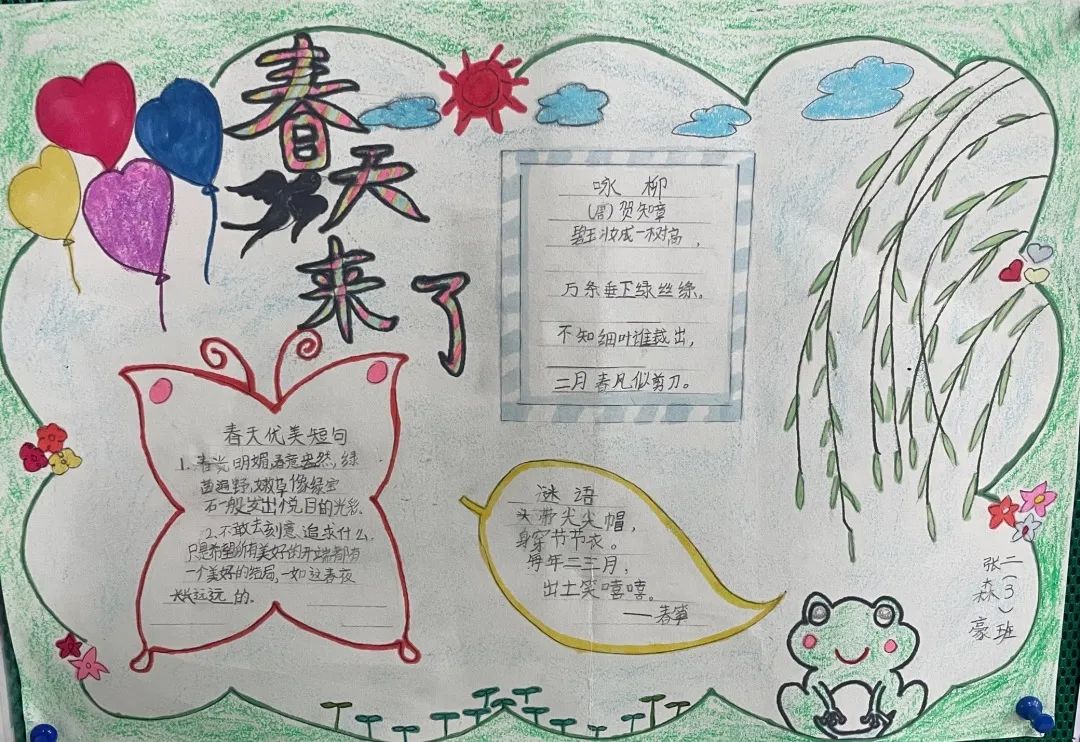 春天来了
咏柳
(唐)贺知章
碧玉妆成一树高,
万条垂下绿丝绦。
不知细叶谁裁出,
二月春风似剪刀。
春天优美短句
1.春光明媚,春意盎然,绿
茵遍野,嫩草像绿宝
石一般发出悦目的光彩.
2.不敢去刻意追求什么.
只是希望所有美好的开端都有
一个美好的结局,一如这春夜
长长远远的.
谜语
头带尖尖帽,
身穿节节衣。
每年二三月,
出土笑嘻嘻。
——春笋
二(3)班
张森豪